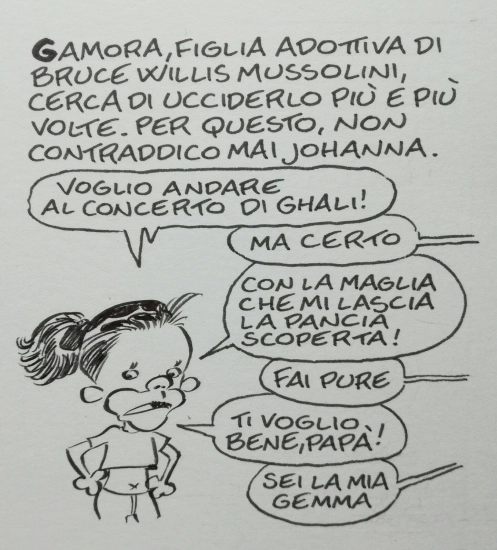 GAMORA, FIGLIA ADOTTIVA DI
BRUCE WILLIS MUSSOLINI,
CERCA DI UCCIDERLO PIÙ E PIÙ
VOLTE. PER QUESTO, NON
CONTRADDICO MAI JOHANNA.
VOGLIO ANDARE
AL CONCERTO DI GHALI!
MA CERTO
CON LA MAGLIA
CHE MI LASCIA
LA PANCIA
SCOPERTA!
FAI PURE
TI VOGLIO
BENE, PAPÀ!
SEI LA MIA
GEMMA